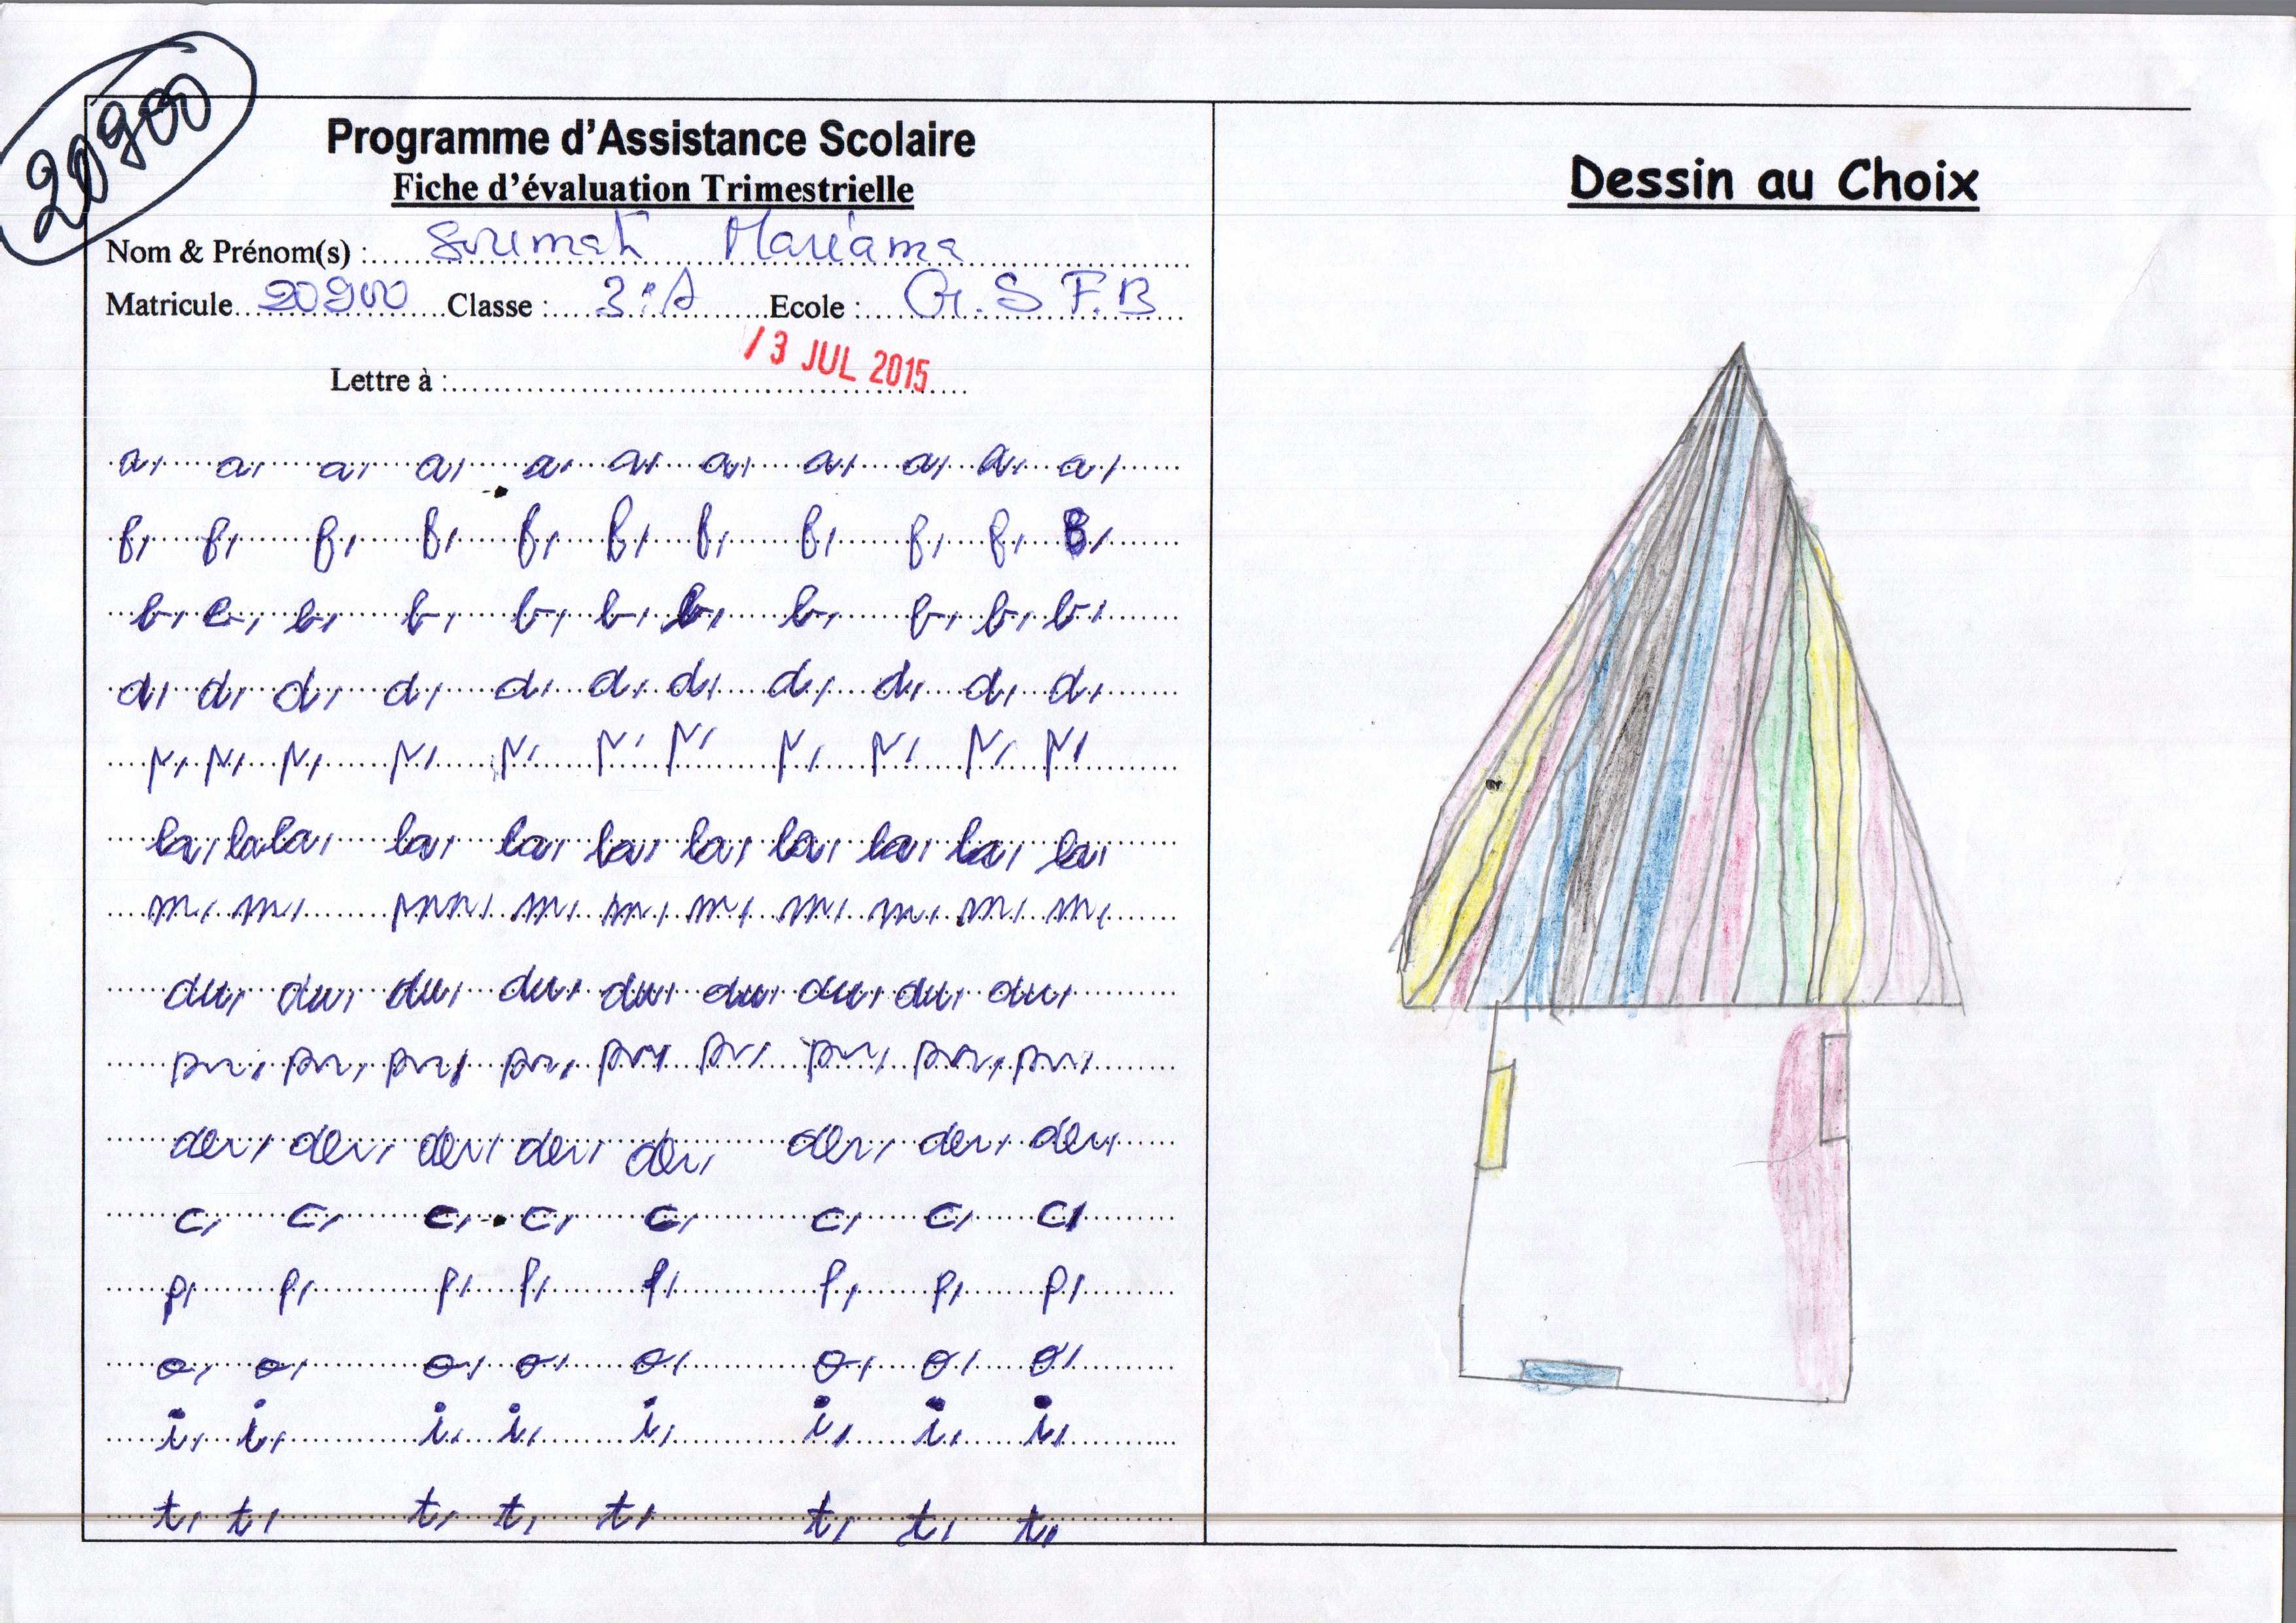 20900
Programme d'Assistance Scolaire
Fiche d'évaluation Trimestrielle
Nom & Prénom(s) : Soumah Mariama
Matricule 20900 Classe : 3:A Ecole : G.S F.B
13 JUL 2015
Lettre à :
a, a, a, a, a, a, a, a, a, a, a,
b, b, b, b, b, b, b, b, b, b, b,
d, d, d, d, d, d, d, d, d, d, d,
la, la la, la, la, la, la, la, la, la, la
m, m, m, m, m, m, m, m, m, m,
du, du, du, du, du, du, du, du, du,
c, c, c, c, c, c, c, c,
p, p, p, p, p, p, p, p,
o, o, o, o, o, o, o, o,
i, i, i, i, i, i, i, i,
t, t, t, t, t, t, t, t,
Dessin au Choix